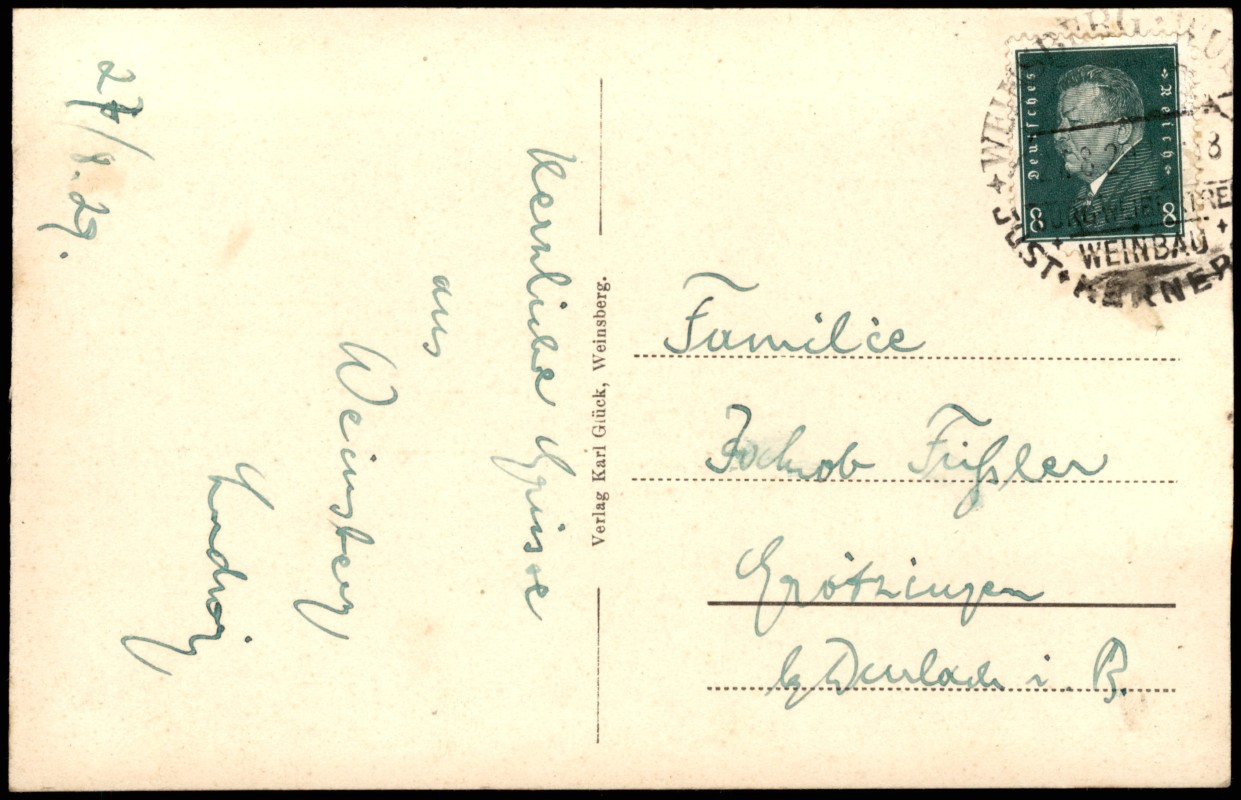 27/8.29.
Herzliche Grüsse
aus
Weinsberg
Ludwig
Verlag Karl Glück, Weinsberg.
Deutsches Reich
8 8
WEINSBERG
WEINBAU
JUST. KERNER
Familie
Jakob Füßler
Grötzingen
b/ Durlach i. B.